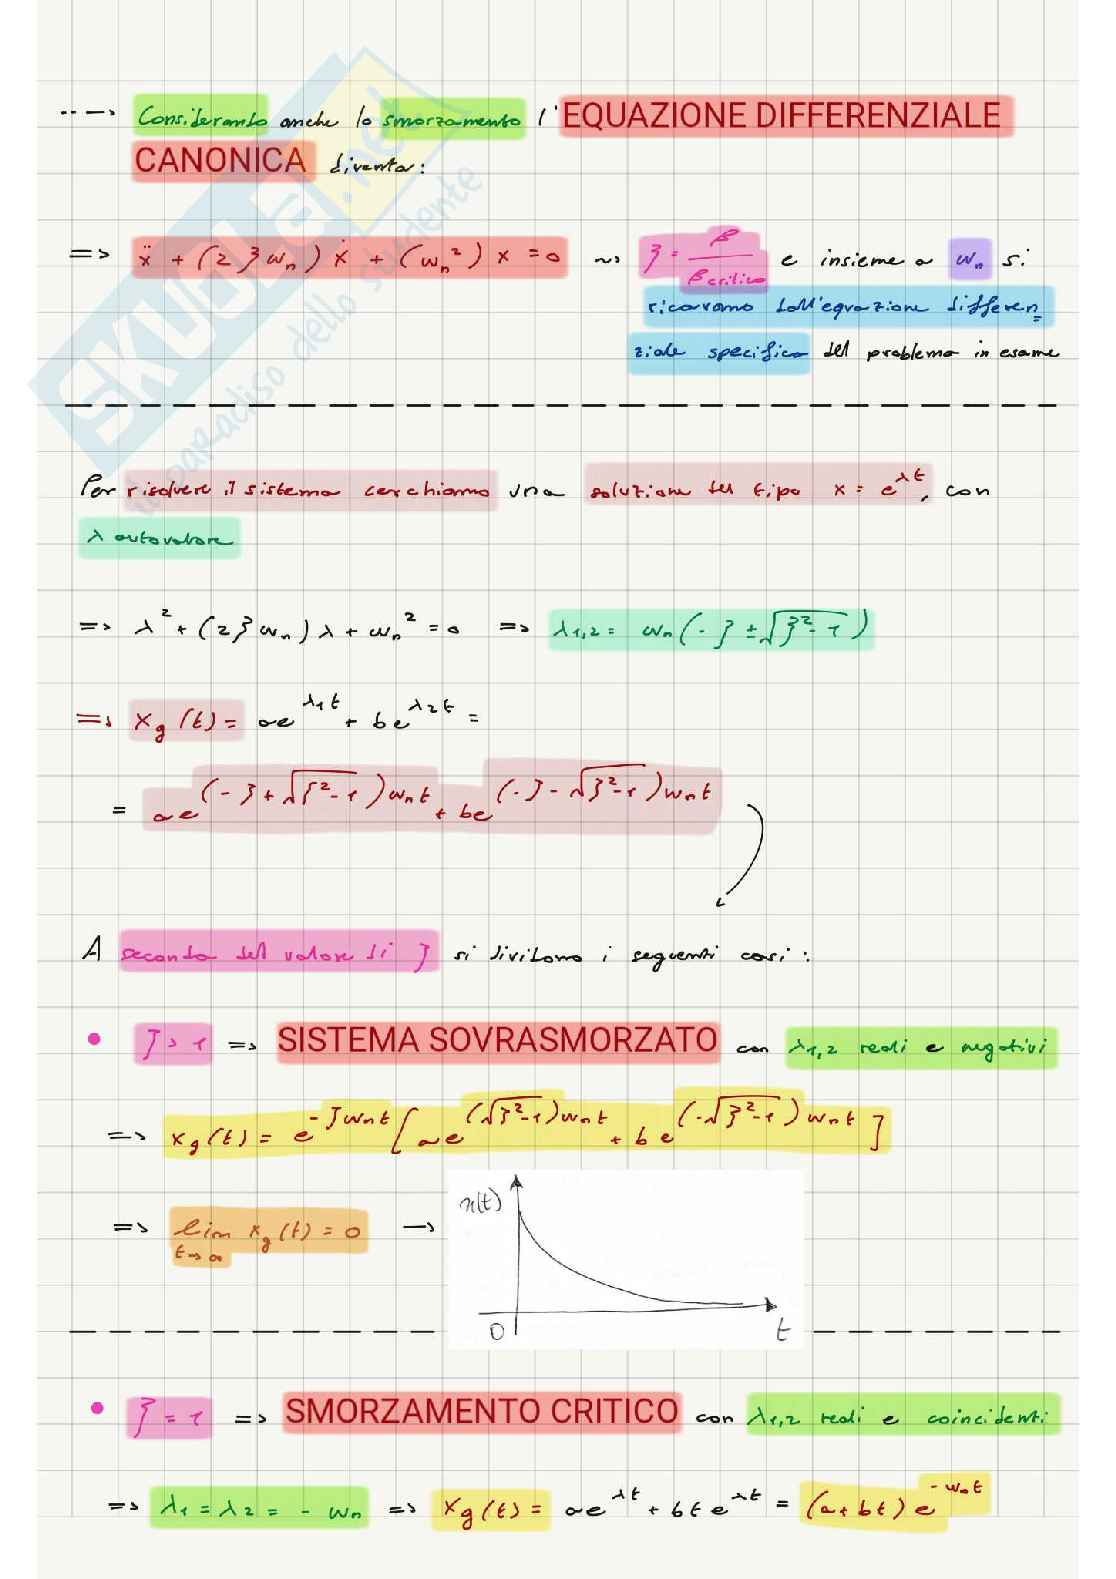 ---> Considerando anche lo smorzamento l'EQUAZIONE DIFFERENZIALE
CANONICA diventa:
=> ẍ + (2ζωn) ẋ + (ωn²) x = 0 ~> ζ = β / βcritico e insieme a ωn si
ricavano dall'equazione differen=
ziale specifica del problema in esame
Per risolvere il sistema cerchiamo una soluzione del tipo x = e^λt, con
λ autovalore
=> λ² + (2ζωn)λ + ωn² = 0 => λ1,2 = ωn(-ζ ± √ζ²-1)
=> xg(t) = ae^λ1t + be^λ2t =
= ae^(-ζ + √ζ²-1)ωnt + be^(-ζ - √ζ²-1)ωnt
A seconda del valore di ζ si dividono i seguenti casi:
• ζ > 1 => SISTEMA SOVRASMORZATO con λ1,2 reali e negativi
=> xg(t) = e^-ζωnt [ae^(√ζ²-1)ωnt + be^(-√ζ²-1)ωnt]
=> lim t->∞ xg(t) = 0 →
x(t)
0 t
• ζ = 1 => SMORZAMENTO CRITICO con λ1,2 reali e coincidenti
=> λ1 = λ2 = -ωn => xg(t) = ae^λt + bte^λt = (a+bt)e^-ωnt
SKUOLA.net
il paradiso dello studente